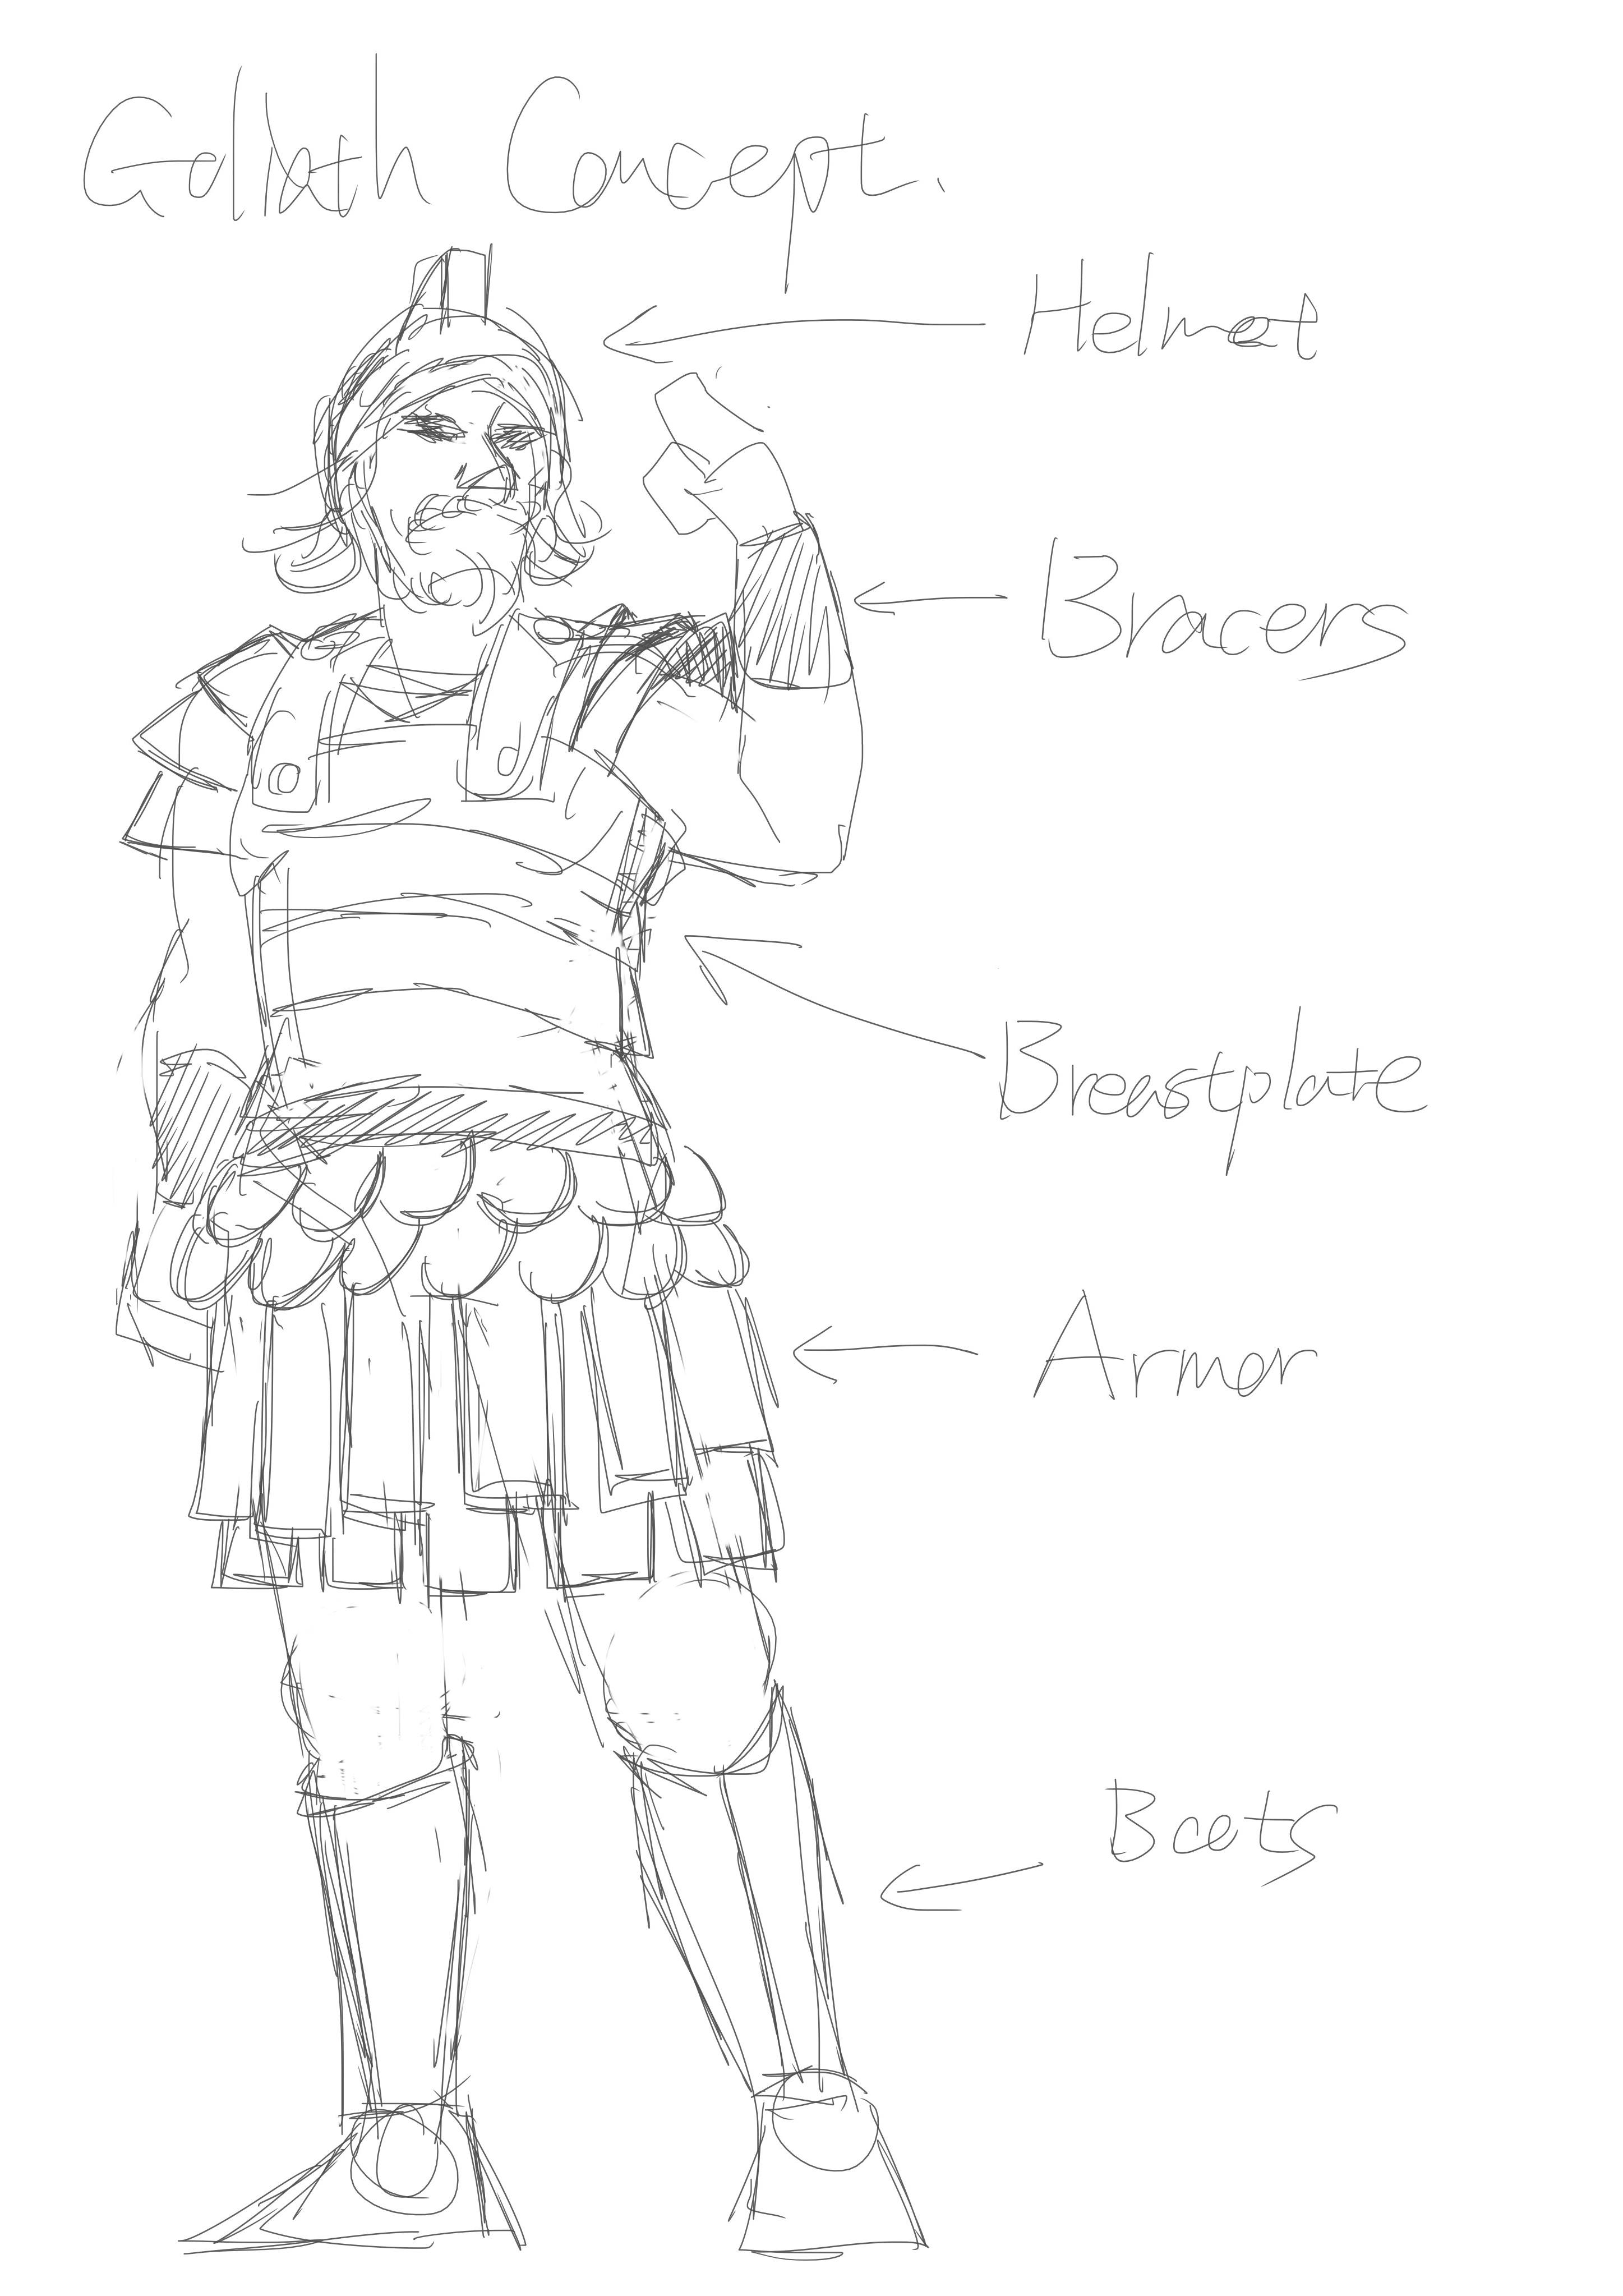 Goliath Concept.
Helmet
Bracers
Breastplate
Armor
Boots